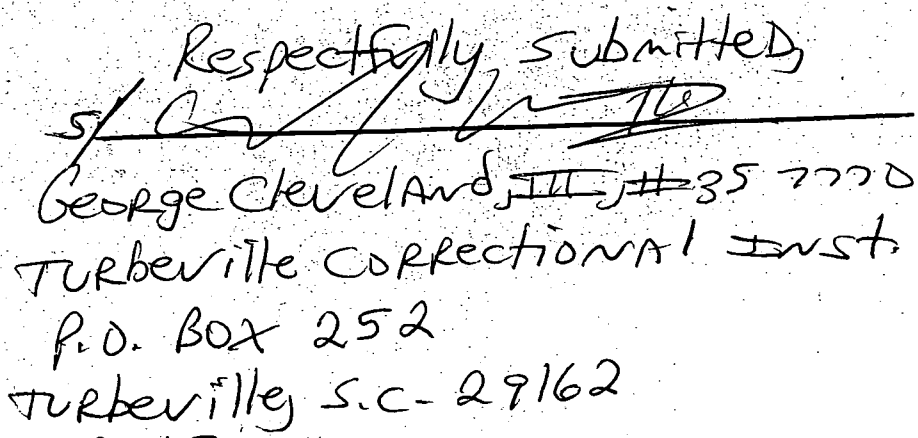 Respectfully Submitted,
s/
George Cleveland, III, #357770
Turbeville Correctional Inst.
P.O. Box 252
Turbeville, S.C. 29162